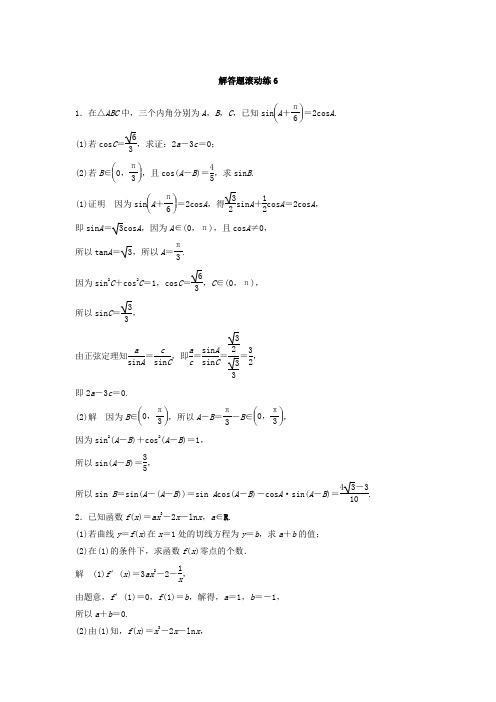 解答题滚动练6
1．在△ABC中，三个内角分别为A，B，C，已知sin(A＋π/6)＝2cosA.
(1)若cosC＝√6/3，求证：2a－3c＝0；
(2)若B∈(0，π/3)，且cos(A－B)＝4/5，求sinB.
(1)证明　因为sin(A＋π/6)＝2cosA，得√3/2sinA＋1/2cosA＝2cosA，
即sinA＝√3cosA，因为A∈(0，π)，且cosA≠0，
所以tanA＝√3，所以A＝π/3.
因为sin²C＋cos²C＝1，cosC＝√6/3，C∈(0，π)，
所以sinC＝√3/3，
由正弦定理知a/sinA＝c/sinC，即a/c＝sinA/sinC＝(√3/2)/(√3/3)＝3/2，
即2a－3c＝0.
(2)解　因为B∈(0，π/3)，所以A－B＝π/3－B∈(0，π/3)，
因为sin²(A－B)＋cos²(A－B)＝1，
所以sin(A－B)＝3/5，
所以sin B＝sin(A－(A－B))＝sin Acos(A－B)－cosA·sin(A－B)＝(4√3－3)/10.
2．已知函数f(x)＝ax³－2x－lnx，a∈R.
(1)若曲线y＝f(x)在x＝1处的切线方程为y＝b，求a＋b的值；
(2)在(1)的条件下，求函数f(x)零点的个数．
解　(1)f′(x)＝3ax²－2－1/x，
由题意，f′(1)＝0，f(1)＝b，解得，a＝1，b＝－1，
所以a＋b＝0.
(2)由(1)知，f(x)＝x³－2x－lnx，